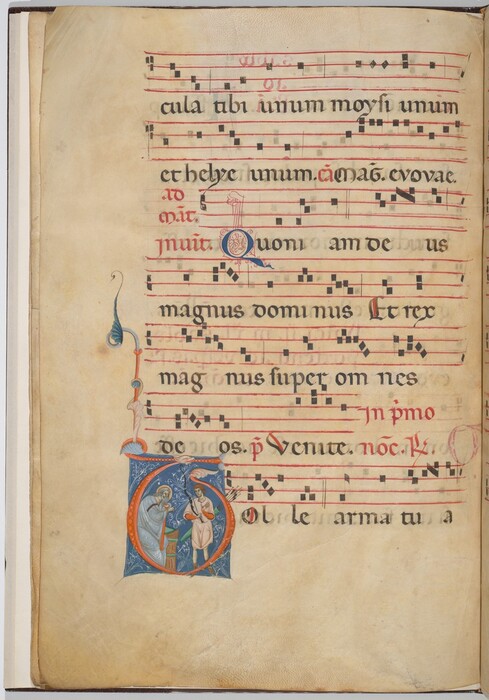 cula tibi unum moysi unum
et helye unum. cā Mag̅. evovae.
ad mat̅.
invit̅. Quoni am de us
magnus domi nus Et rex
mag nus super om nes
de os. p̅ Venite. In p̅mo noc̅. R̷.
Tol le arma tu a